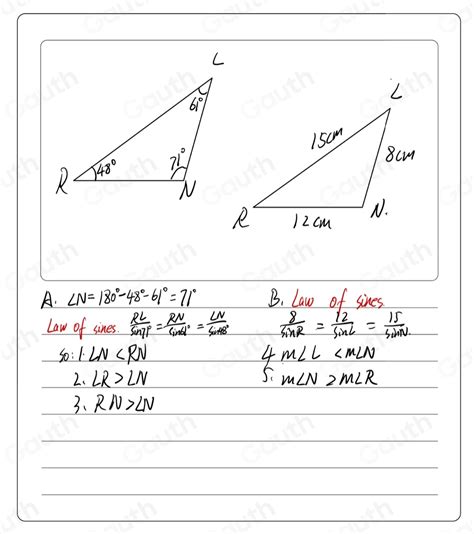 L
61°
R 48° 71° N
L
15cm
8cm
R 12cm N.
A. ∠N=180°-48°-61°=71°
Law of sines. RL/sin71° = RN/sin61° = LN/sin48°
so: 1. LN < RN
2. LR > LN
3. RN > LN
B. Law of sines
8/sinR = 12/sinL = 15/sinN.
4. m∠L < m∠N
5. m∠N > m∠R
Gauth